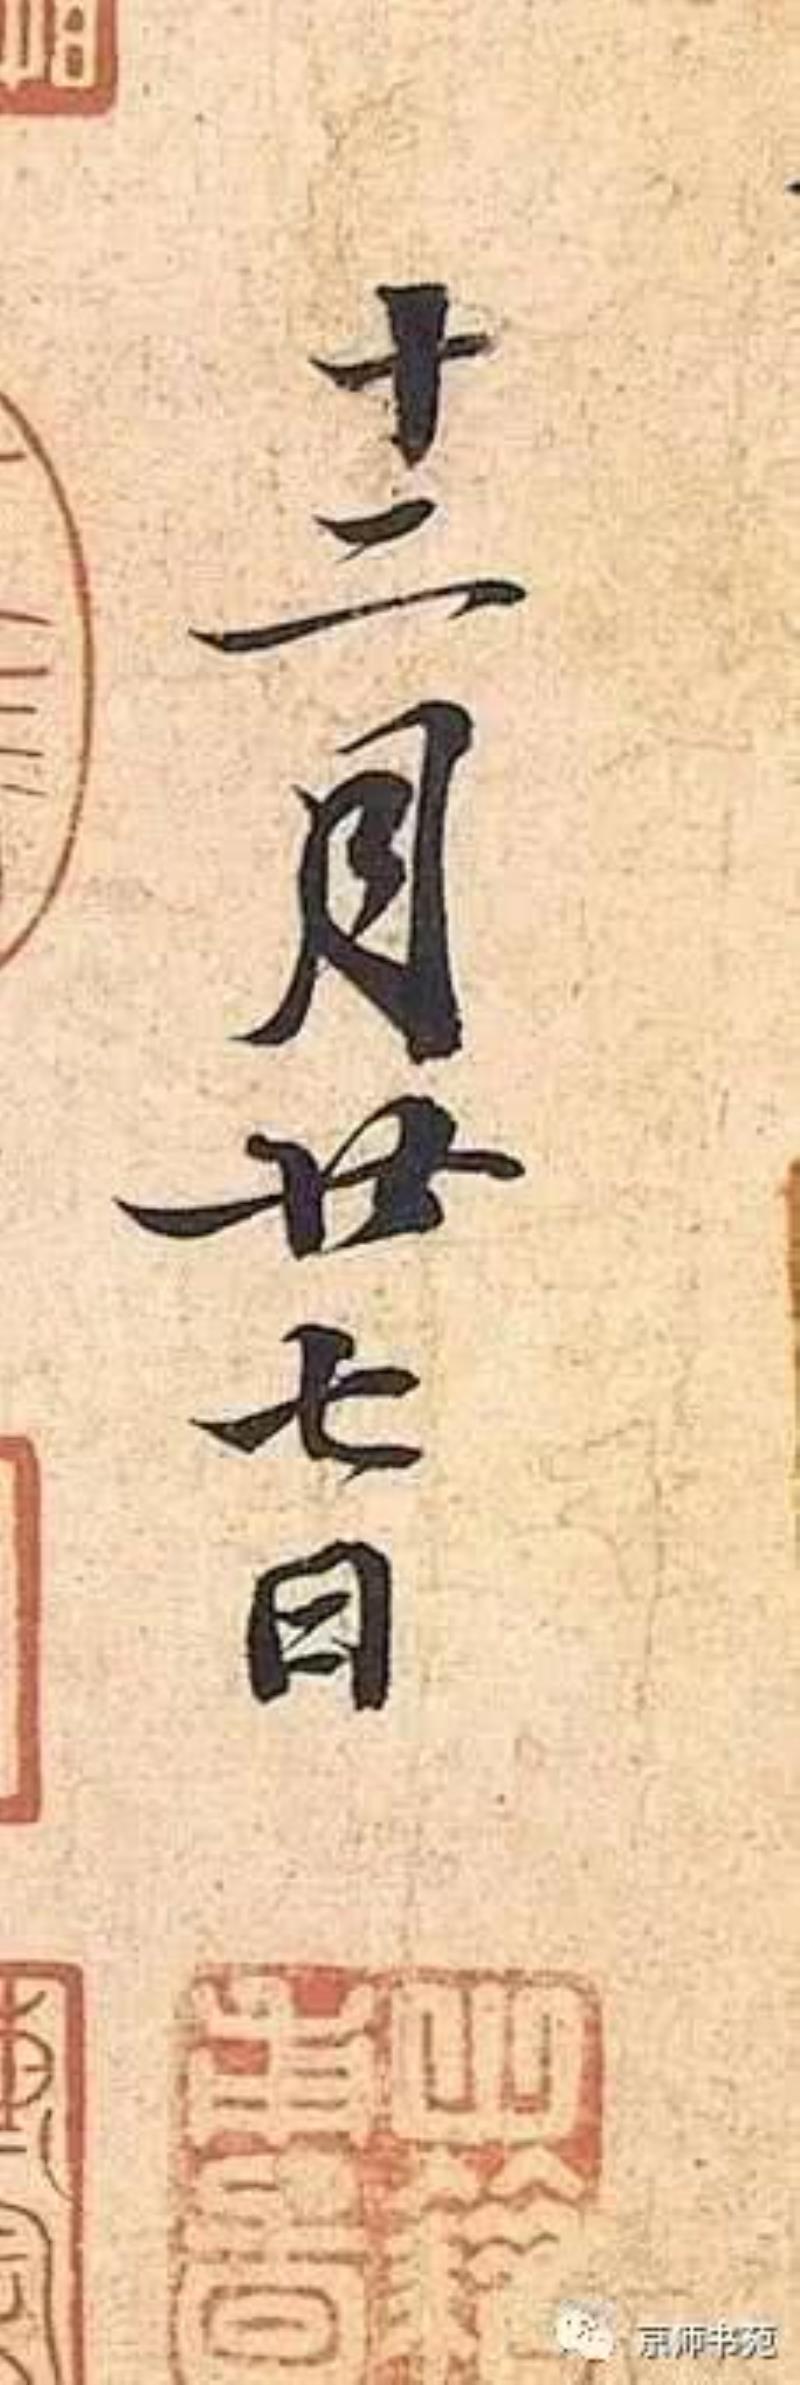 十二月廿七日
京师书苑